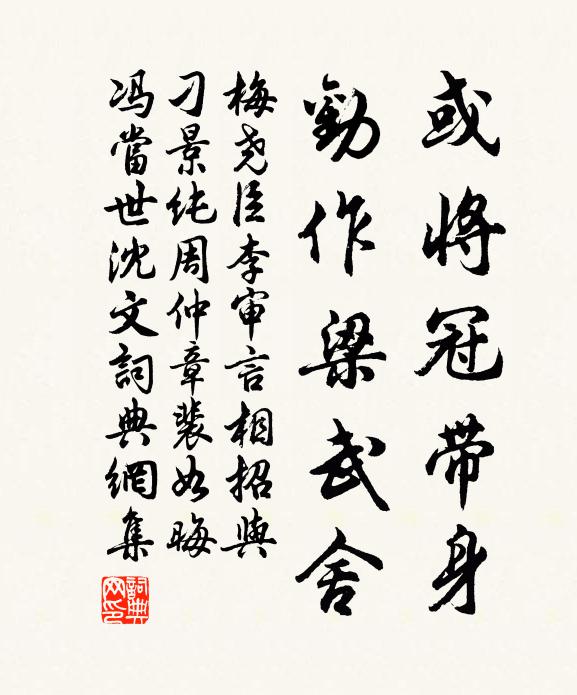 或將冠带身
勸作梁武舍
梅尧臣李审言相招與
刁景纯周仲章裴如晦
冯當世沈文詞典網集
詞典網印